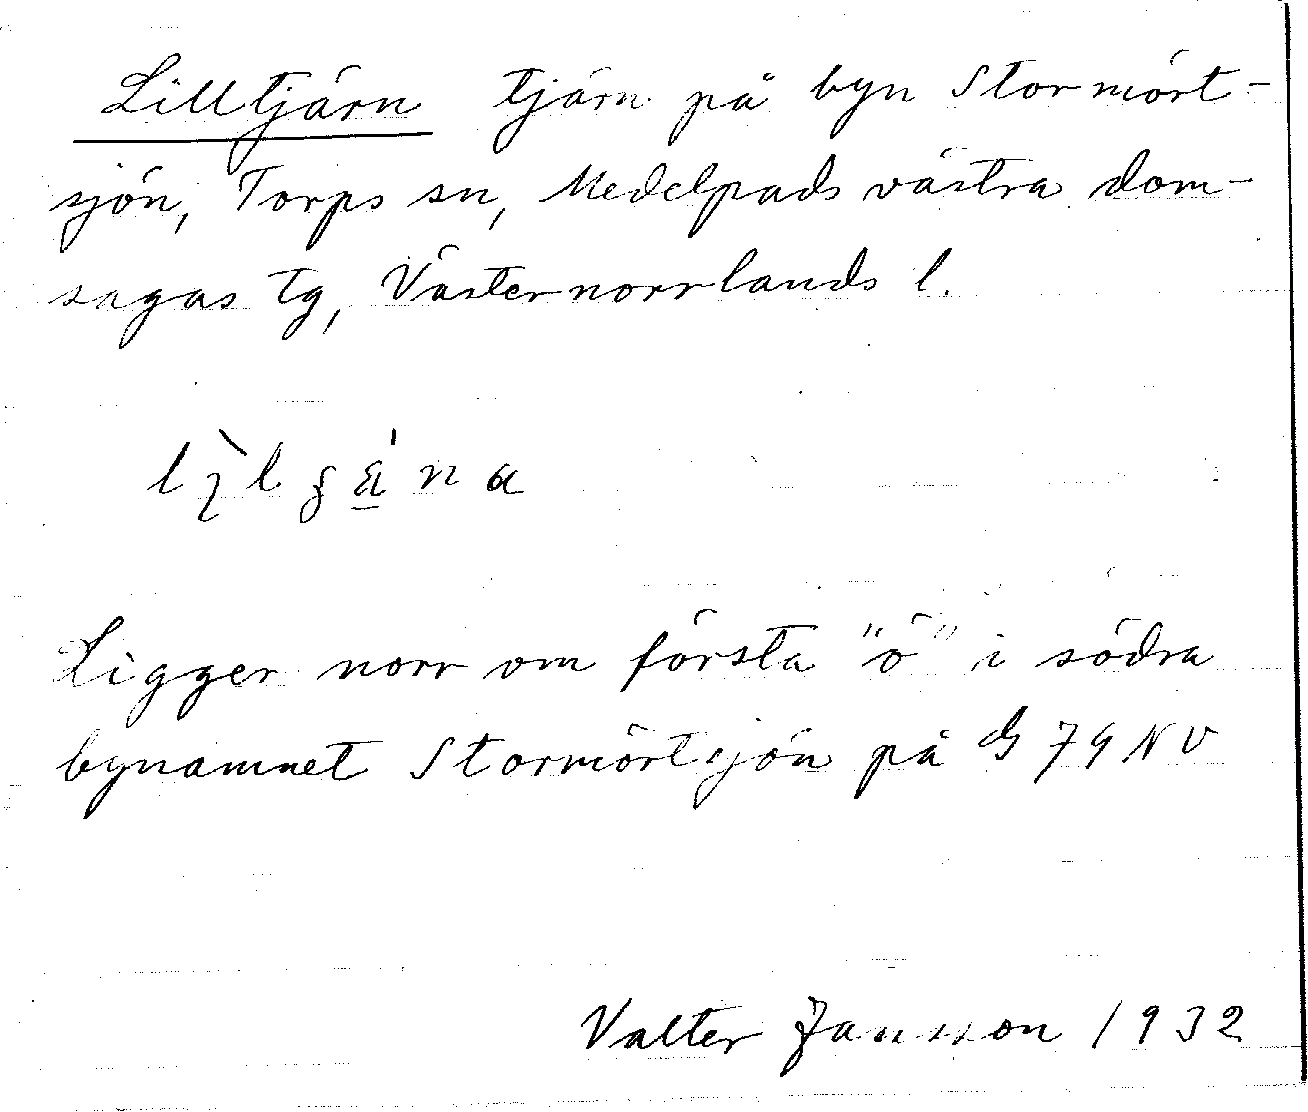 Lilltjärn tjärn på byn Stormört-
sjön, Torps sn, Medelpads västra dom-
sagas tg, Västernorrlands l.
Ligger norr om första "ö" i södra
bynamnet Stormörtsjön på G 79 NV
Valter Jansson 1932